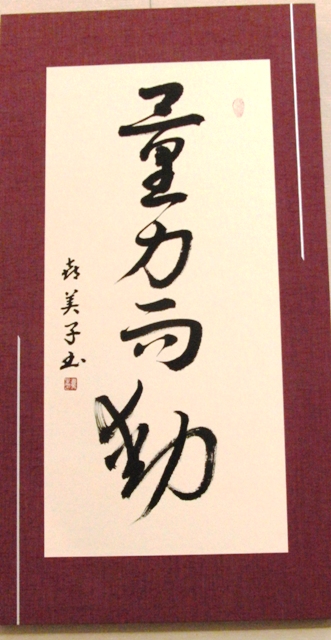 量力而動
喜美子書